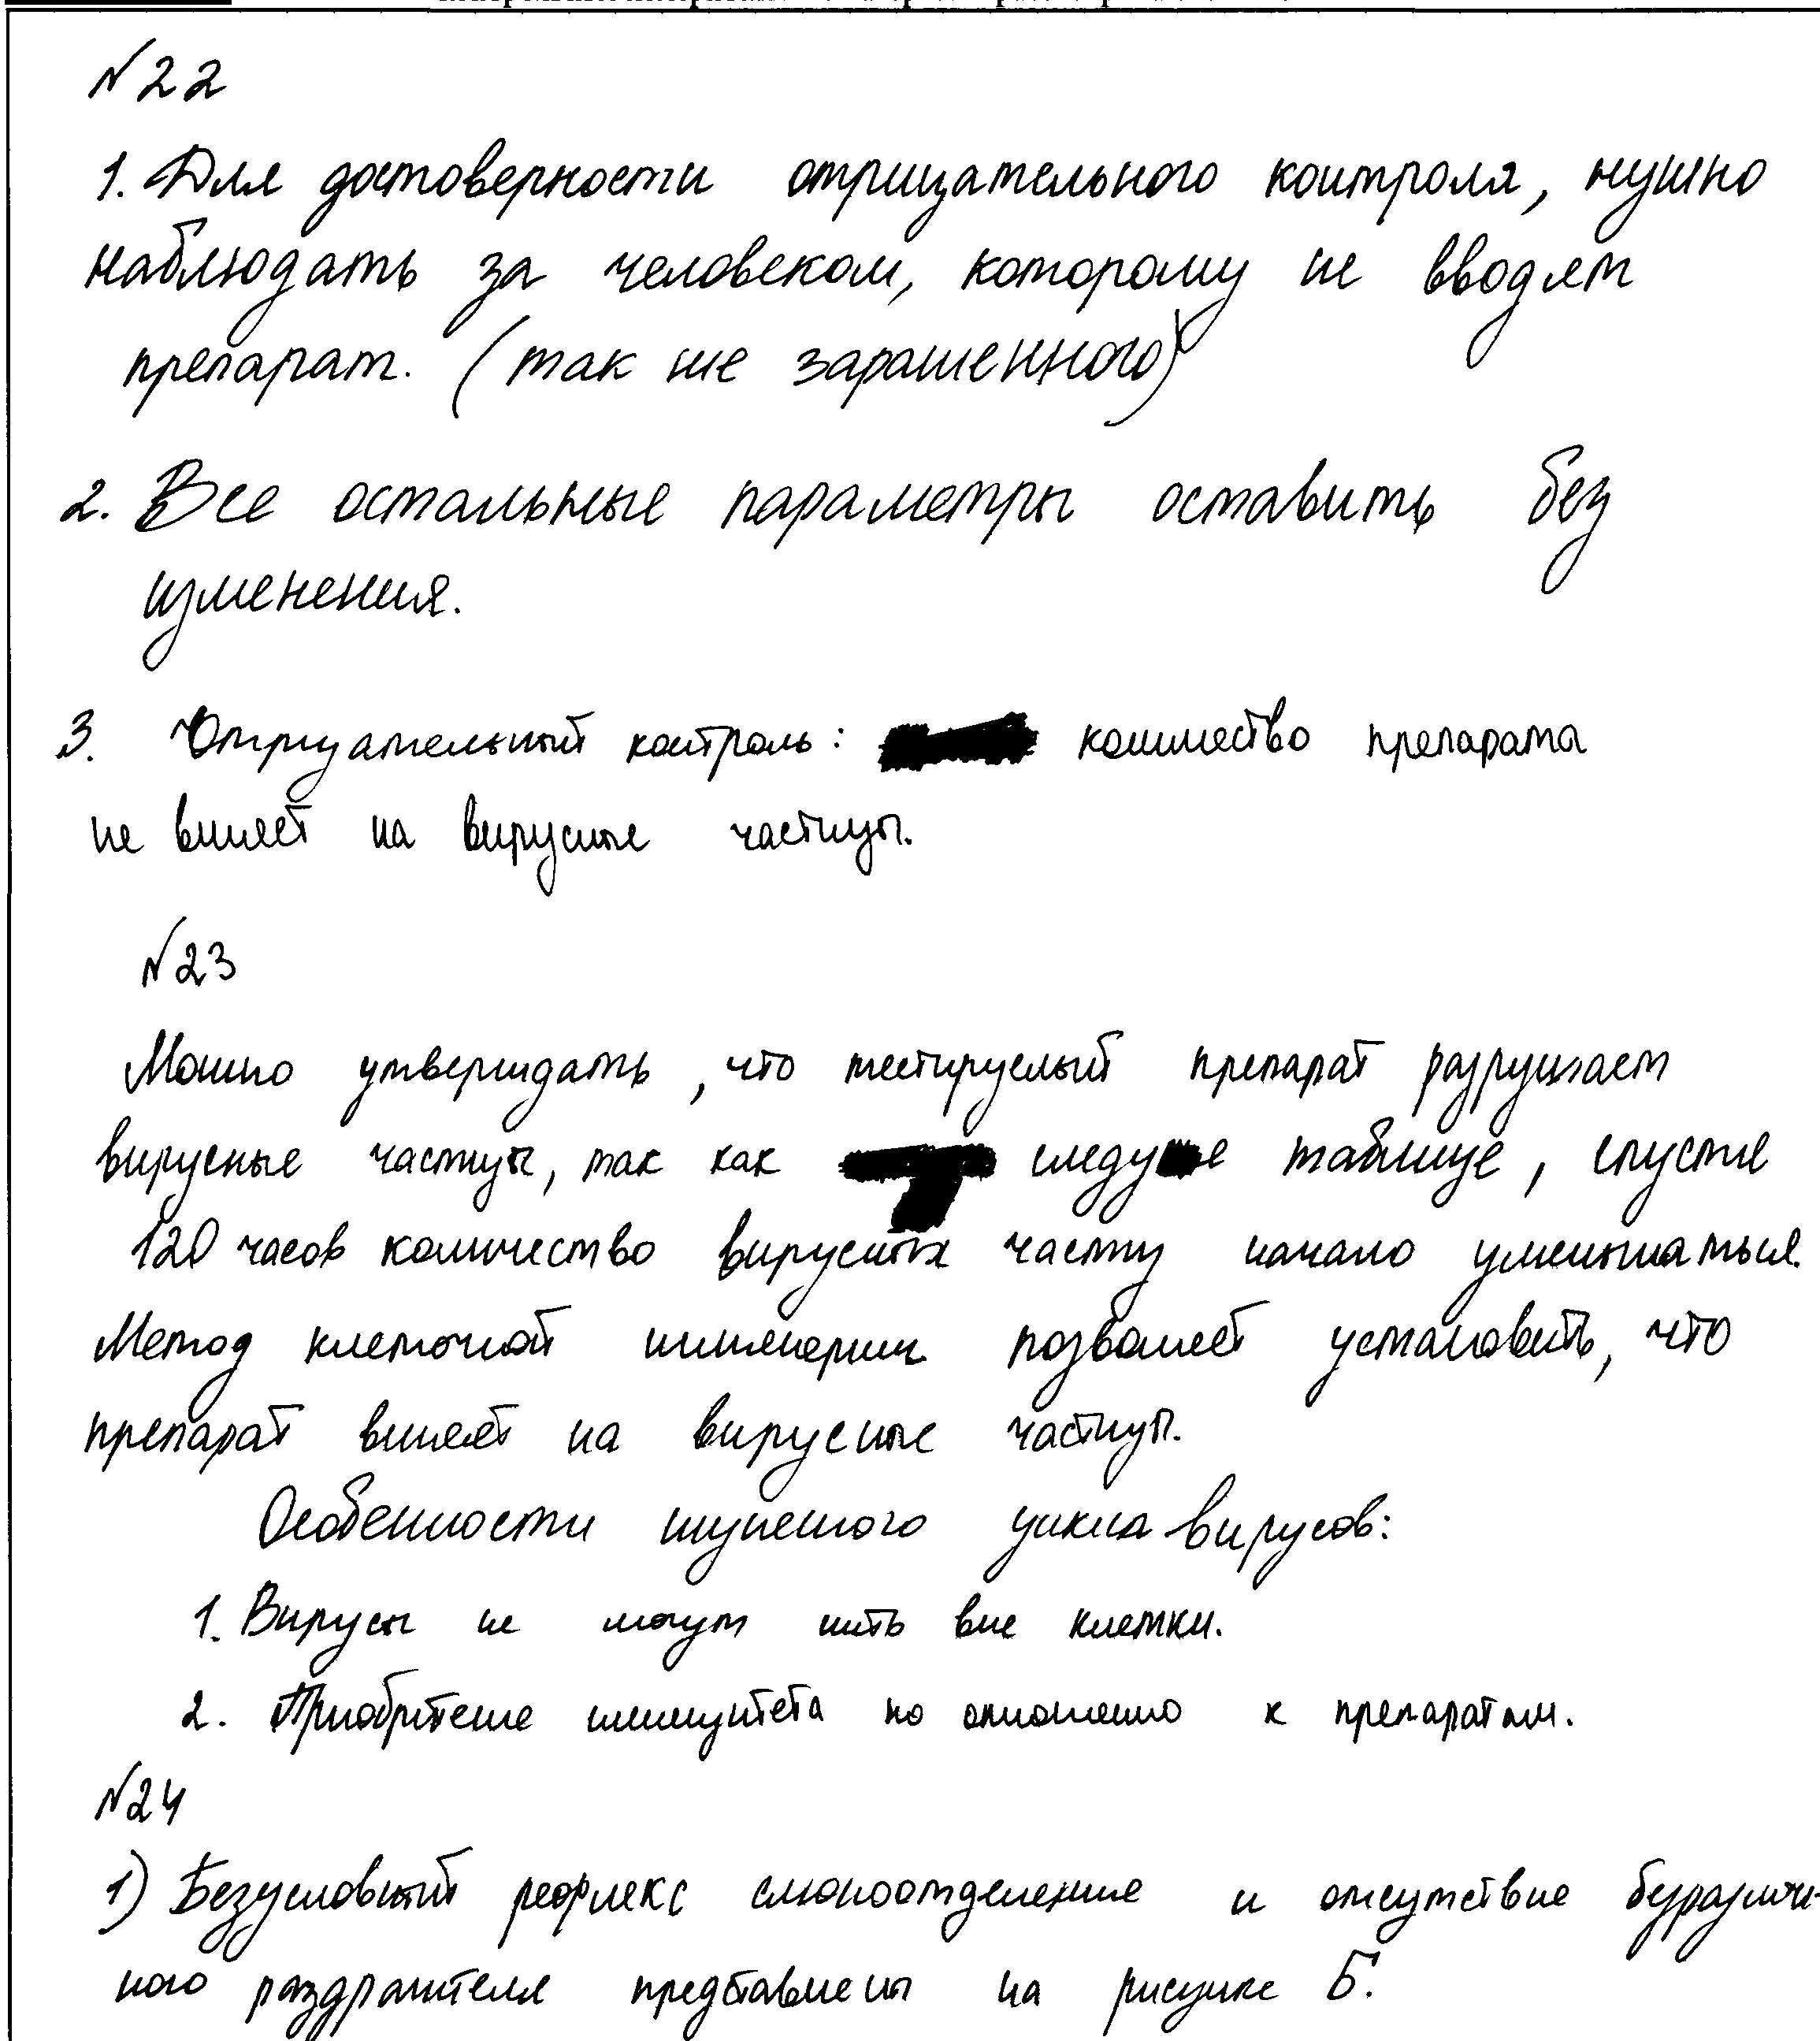 №22
1. Для достоверности отрицательного контроля, нужно
наблюдать за человеком, которому не вводят
препарат. (так же зараженного)
2. Все остальные параметры оставить без
изменения.
3. Отрицательный контроль: количество препарата
не влияет на вирусные частицы.
№23
Можно утверждать, что тестируемый препарат разрушает
вирусные частицы, так как таблице, спустя
120 часов количество вирусных частиц начало уменьшаться.
Метод клеточной инженерии позволяет установить, что
препарат влияет на вирусные частицы.
Особенности жизненного цикла вирусов:
1. Вирусы не могут жить вне клетки.
2. Приобретение иммунитета по отношению к препаратам.
№24
1) Безусловный рефлекс слюноотделение и отсутствие безразлич-
ного раздражителя представлены на рисунке Б.